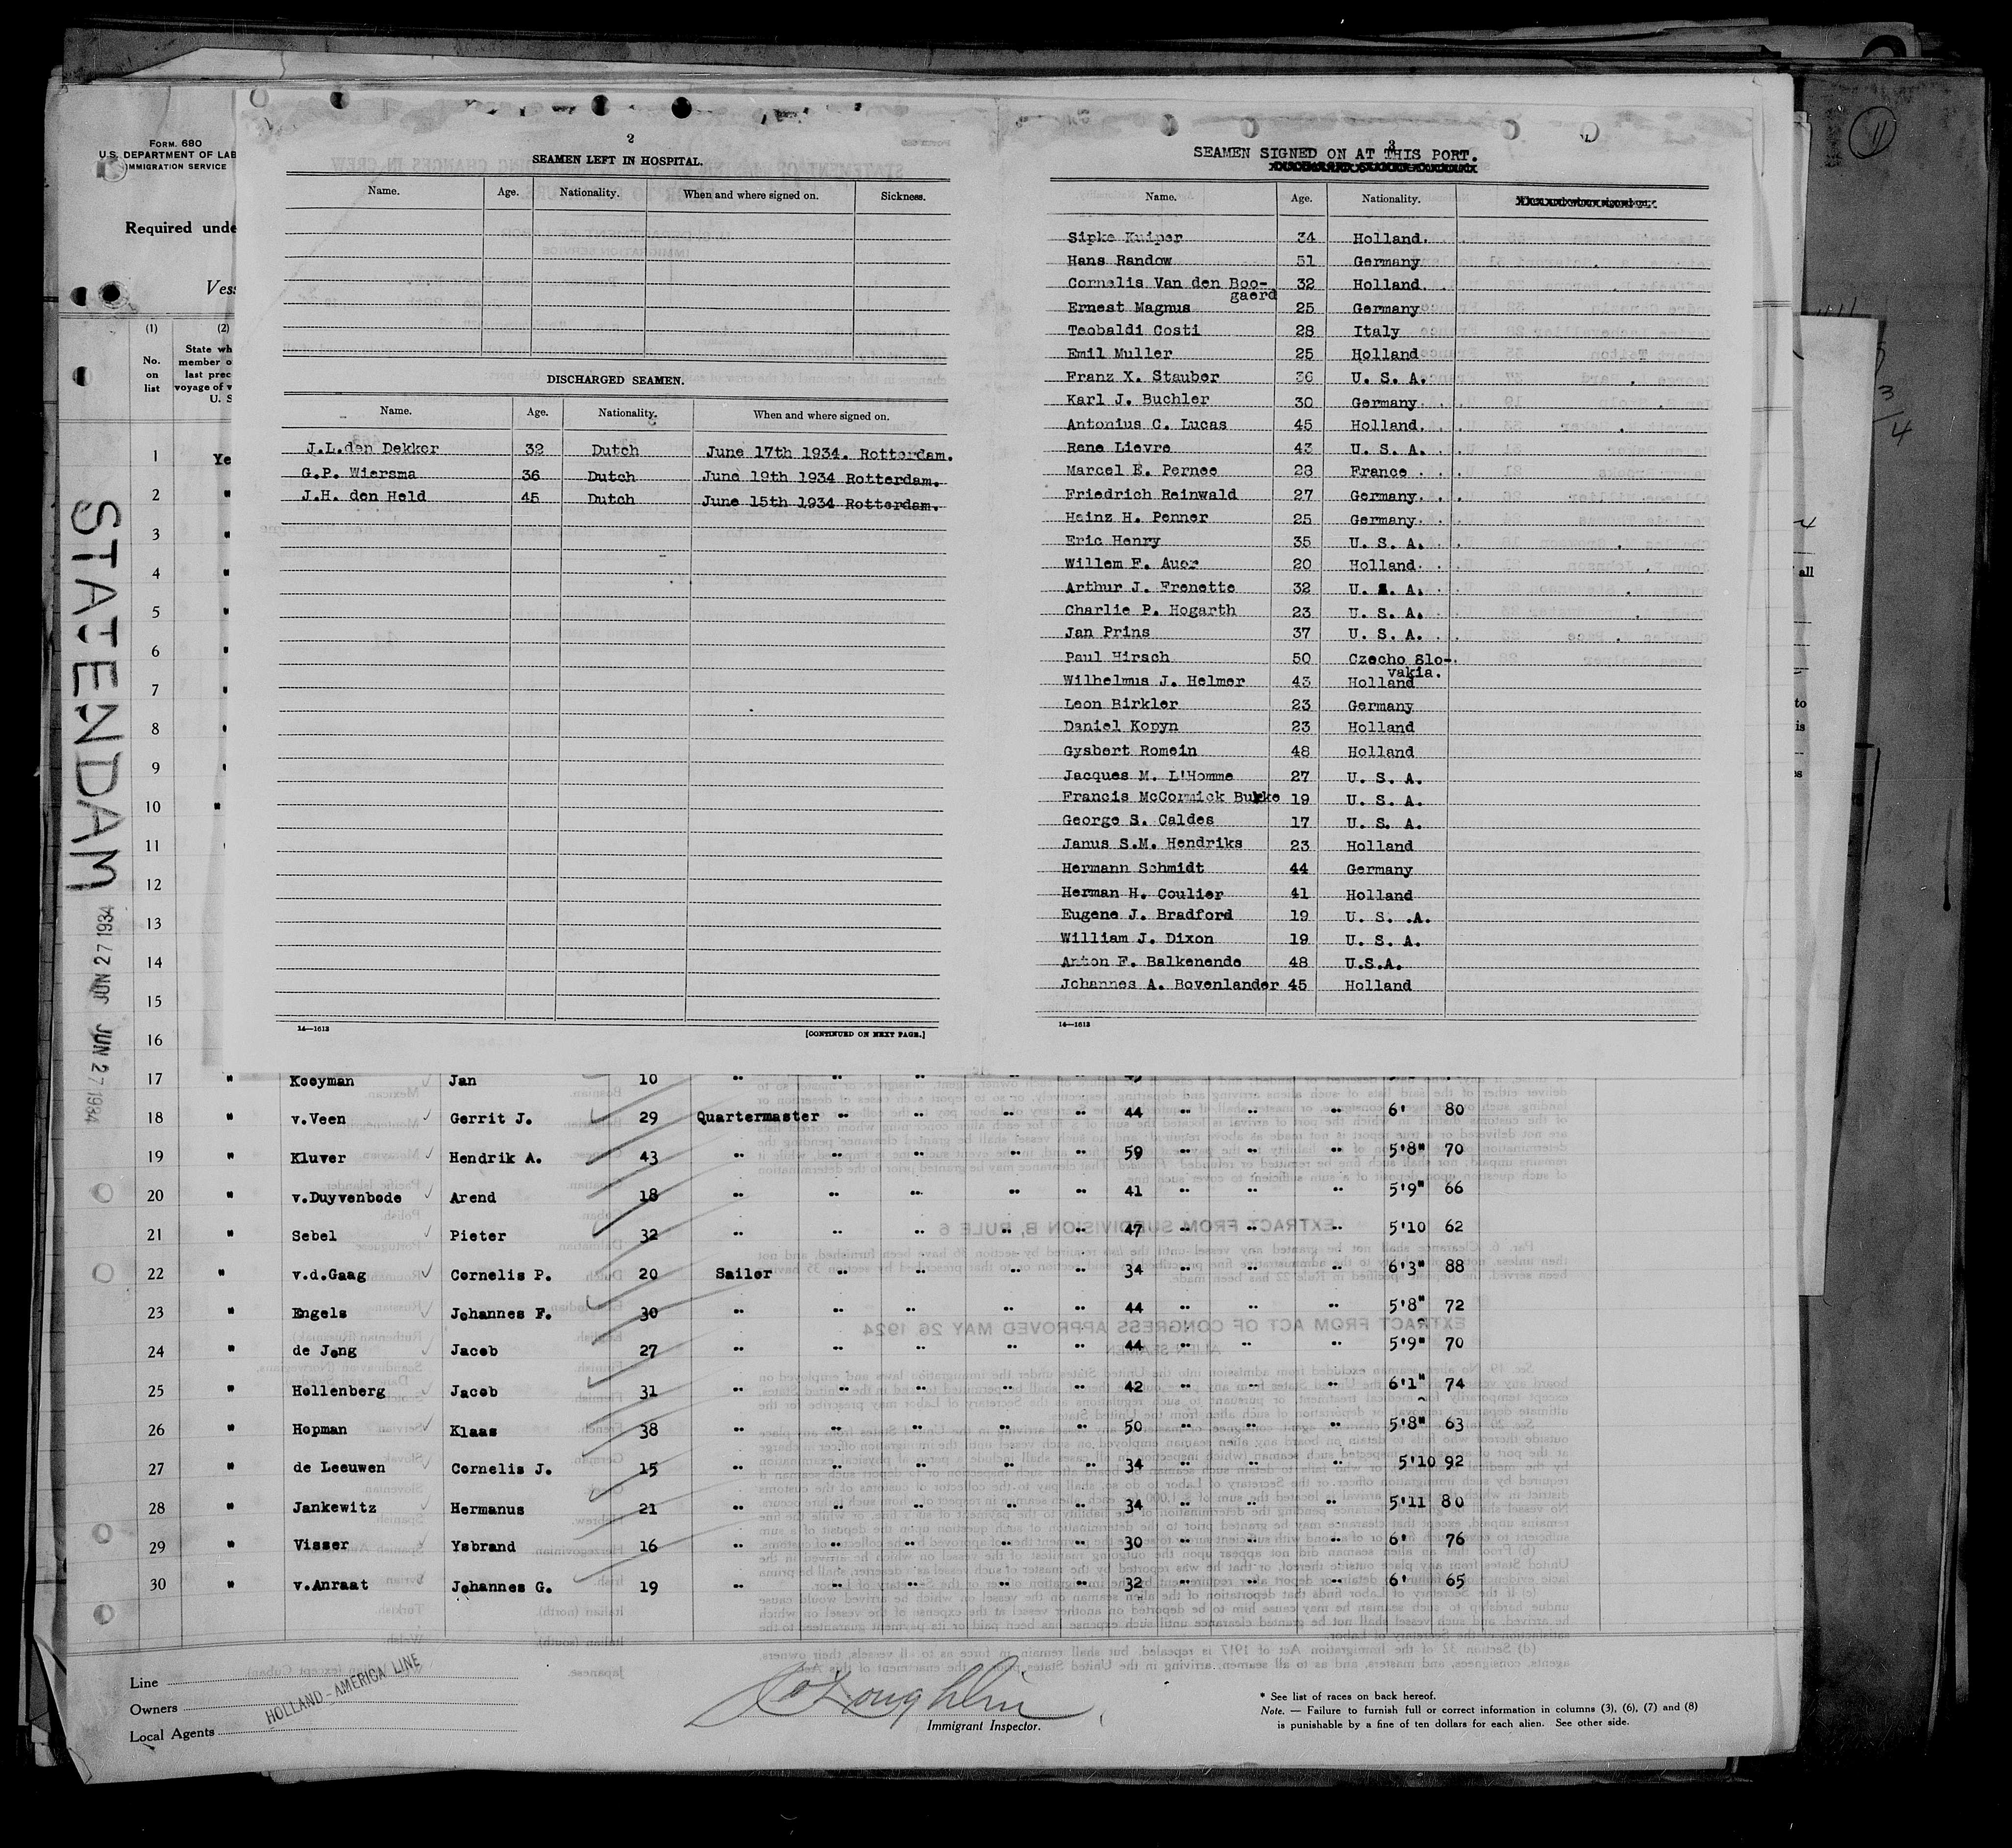 FORM. 680
U. S. DEPARTMENT OF LAB
IMMIGRATION SERVICE
Required unde
Vess
(1) (2)
No. on list
State wh
member o
last prec
voyage of v
U. S
STATENDAM
JUN 27 1934
JUN 27 1934
1 Ye
2 "
3 "
4 "
5 "
6 "
7 "
8 "
9 "
10 "
11
12
13
14
15
16
2
SEAMEN LEFT IN HOSPITAL.
Name. Age. Nationality. When and where signed on. Sickness.
DISCHARGED SEAMEN.
Name. Age. Nationality. When and where signed on.
J.L.den Dekker 32 Dutch June 17th 1934. Rotterdam.
G.P. Wiersma 36 Dutch June 19th 1934 Rotterdam.
J.H. den Held 45 Dutch June 15th 1934 Rotterdam.
14—1613 [CONTINUED ON NEXT PAGE.]
3
SEAMEN SIGNED ON AT THIS PORT.
Name. Age. Nationality.
Sipke Kuiper 34 Holland.
Hans Randow 51 Germany
Cornelis Van den Boo-
gaerd 32 Holland
Ernest Magnus 25 Germany
Teobaldi Costi 28 Italy
Emil Muller 25 Holland
Franz X. Stauber 36 U. S. A.
Karl J. Buchler 30 Germany
Antonius C. Lucas 45 Holland
Rene Lievre 43 U. S. A.
Marcel E. Pernee 28 France
Friedrich Reinwald 27 Germany
Heinz H. Penner 25 Germany
Eric Henry 35 U. S. A.
Willem F. Auer 20 Holland
Arthur J. Frenette 32 U. S. A.
Charlie P. Hogarth 23 U. S. A.
Jan Prins 37 U. S. A.
Paul Hirsch 50 Czecho Slo-
vakia.
Wilhelmus J. Helmer 43 Holland
Leon Birkler 23 Germany
Daniel Kopyn 23 Holland
Gysbert Romein 48 Holland
Jacques M. L'Homme 27 U. S. A.
Francis McCormick Burke 19 U. S. A.
George S. Caldes 17 U. S. A.
Janus S.M. Hendriks 23 Holland
Hermann Schmidt 44 Germany
Herman H. Coulier 41 Holland
Eugene J. Bradford 19 U. S. .A.
William J. Dixon 19 U. S. A.
Anton F. Balkenende 48 U.S.A.
Johannes A. Bovenlander 45 Holland
14—1613
17 " Kooyman Jan 10 " " " " "
18 " v.Veen Gerrit J. 29 Quartermaster " " " " 44 " " " 6' 80
19 " Kluver Hendrik A. 43 " " " " " 59 " " " 5'8" 70
20 " v.Duyvenbode Arend 18 " " " " " 41 " " " 5'9" 66
21 " Sebel Pieter 32 " " " " " 47 " " " 5'10 62
22 " v.d.Gaag Cornelis P. 20 Sailor " " " " 34 " " " 6'3" 88
23 " Engels Johannes F. 30 " " " " " 44 " " " 5'8" 72
24 " de Jong Jacob 27 " " " " " 44 " " " 5'9" 70
25 " Hollenberg Jacob 31 " " " " " 42 " " " 6'1" 74
26 " Hopman Klaas 38 " " " " " 50 " " " 5'8" 63
27 " de Leeuwen Cornelis J. 15 " " " " " 34 " " " 5'10 92
28 " Jankewitz Hermanus 21 " " " " " 34 " " " 5'11 80
29 " Visser Ysbrand 16 " " " " " 30 " " " 6' 76
30 " v.Anraat Johannes G. 19 " " " " " 32 " " " 6' 65
Line
Owners
Local Agents
HOLLAND-AMERICA LINE
Immigrant Inspector.
* See list of races on back hereof.
Note. — Failure to furnish full or correct information in columns (3), (6), (7) and (8)
is punishable by a fine of ten dollars for each alien. See other side.
11
3/4
all
to
is